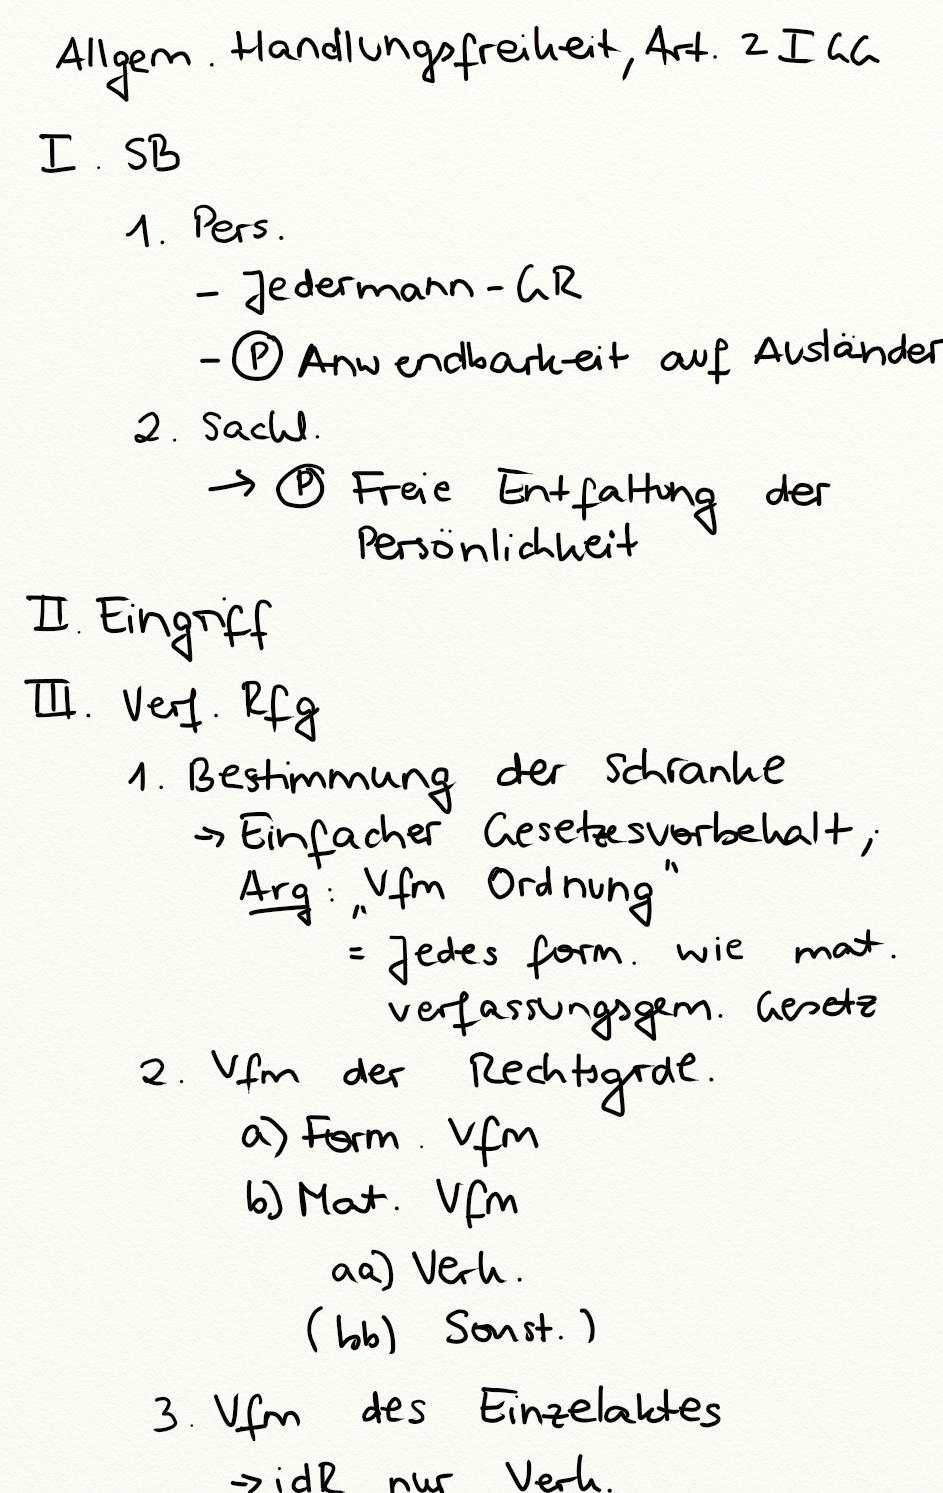 Allgem. Handlungsfreiheit, Art. 2 I GG
I. SB
1. Pers.
- Jedermann-GR
- Ⓟ Anwendbarkeit auf Ausländer
2. Sachl.
→ Ⓟ Freie Entfaltung der
Persönlichkeit
II. Eingriff
III. Verf. Rfg
1. Bestimmung der Schranke
→ Einfacher Gesetzesvorbehalt,
Arg: „Vfm Ordnung"
= Jedes form. wie mat.
verfassungsgem. Gesetz
2. Vfm der Rechtsgrdl.
a) Form. Vfm
b) Mat. Vfm
aa) Verh.
(bb) Sonst.)
3. Vfm des Einzelaktes
→ idR nur Verh.